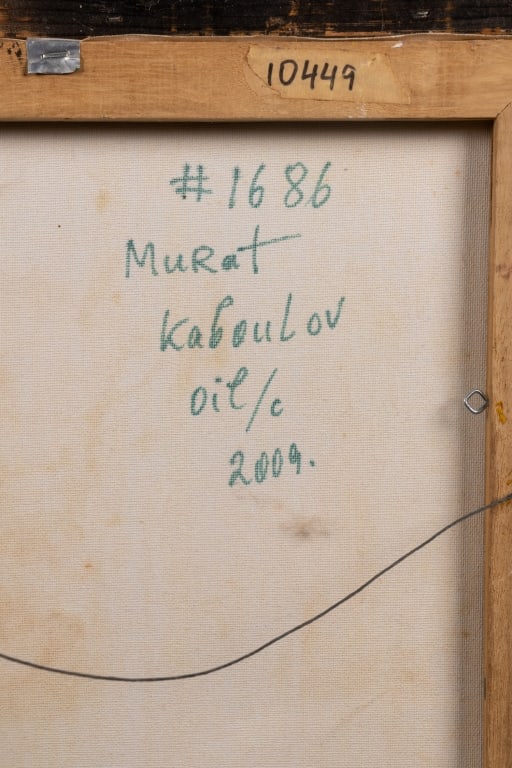 10449
#1686
Murat
Kaboulov
oil/c
2009.